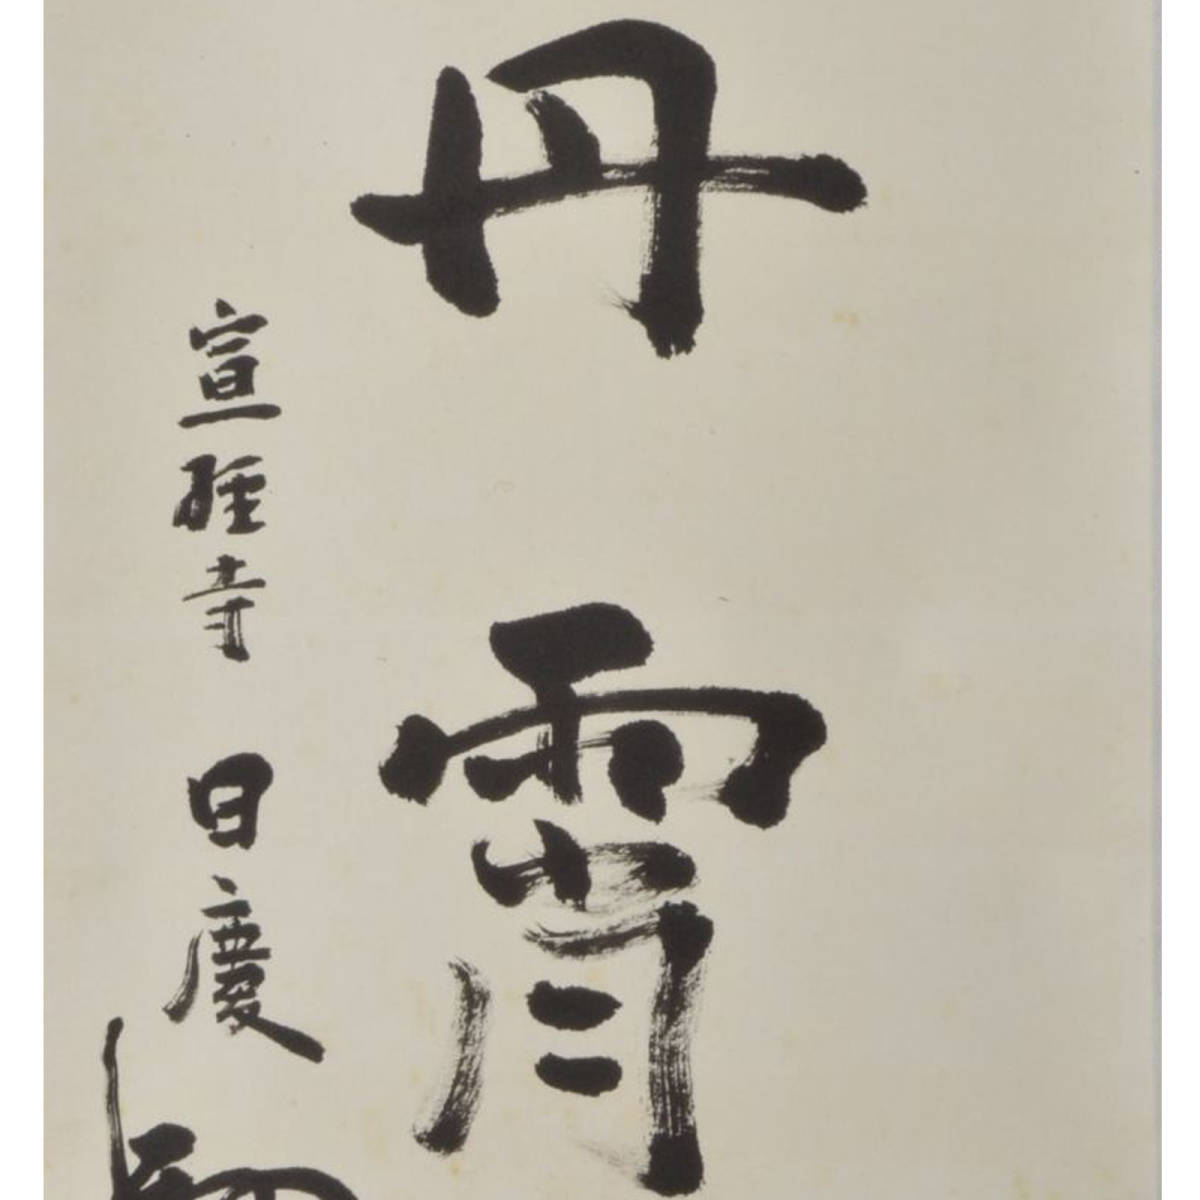 丹霄
宣經寺 日慶